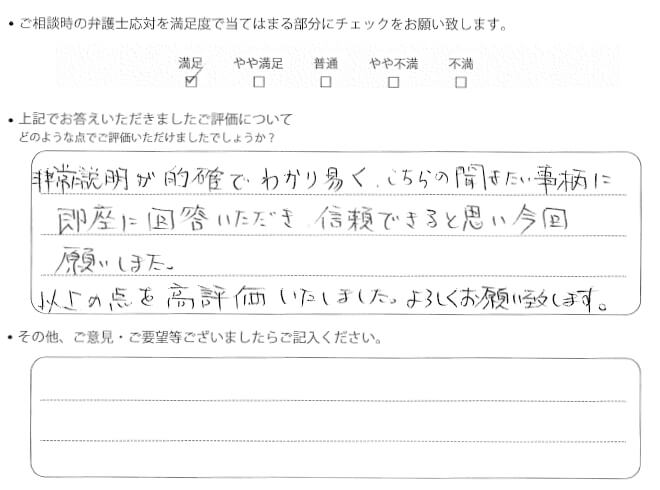 • ご相談時の弁護士応対を満足度で当てはまる部分にチェックをお願い致します。
満足 やや満足 普通 やや不満 不満
☑ ☐ ☐ ☐ ☐
• 上記でお答えいただきましたご評価について
どのような点でご評価いただけましたでしょうか？
非常説明が的確でわかり易く、こちらの聞きたい事柄に
即座に回答いただき、信頼できると思い今回
願いしました。
以上の点を高評価いたしました。よろしくお願い致します。
• その他、ご意見・ご要望等ございましたらご記入ください。